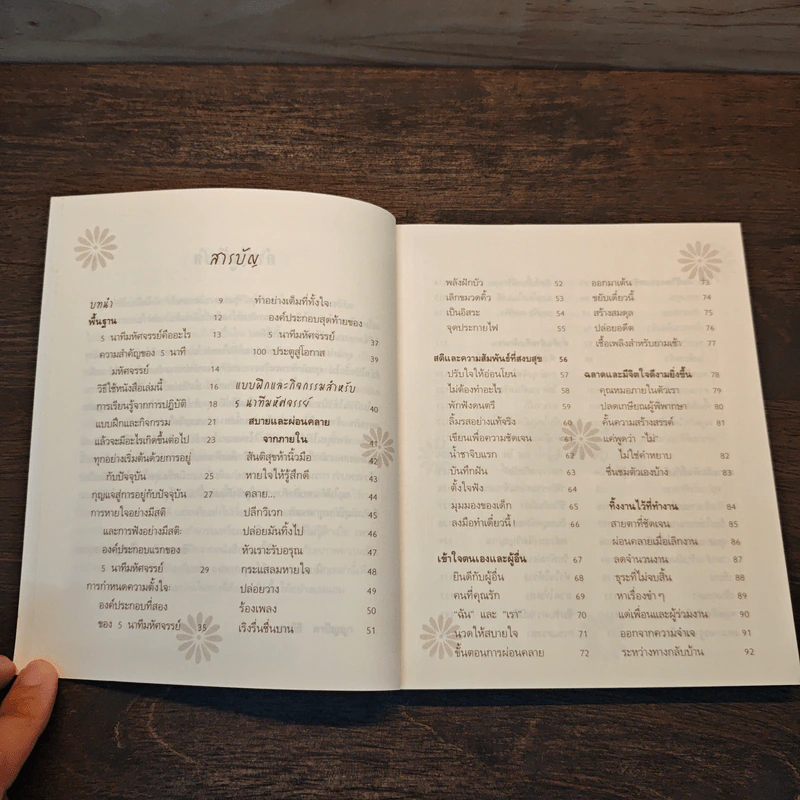 สารบัญ
บทนำ 9
พื้นฐาน 12
5 นาทีมหัศจรรย์คืออะไร 13
ความสำคัญของ 5 นาที
มหัศจรรย์ 14
วิธีใช้หนังสือเล่มนี้ 16
การเรียนรู้จากการปฏิบัติ 18
แบบฝึกและกิจกรรม 21
แล้วจะมีอะไรเกิดขึ้นต่อไป 23
ทุกอย่างเริ่มต้นด้วยการอยู่
กับปัจจุบัน 25
กุญแจสู่การอยู่กับปัจจุบัน 27
การหายใจอย่างมีสติ
และการฟังอย่างมีสติ:
องค์ประกอบแรกของ
5 นาทีมหัศจรรย์ 29
การกำหนดความตั้งใจ:
องค์ประกอบที่สอง
ของ 5 นาทีมหัศจรรย์ 35
ทำอย่างเต็มที่ทั้งใจ:
องค์ประกอบสุดท้ายของ
5 นาทีมหัศจรรย์ 37
100 ประตูสู่โอกาส 39
แบบฝึกและกิจกรรมสำหรับ
5 นาทีมหัศจรรย์ 40
สบายและผ่อนคลาย
จากภายใน 41
สันติสุขห้านิ้วมือ 42
หายใจให้รู้สึกดี 43
คลาย... 44
ปลีกวิเวก 45
ปล่อยมันทิ้งไป 46
หัวเราะรับอรุณ 47
กระแสลมหายใจ 48
ปล่อยวาง 49
ร้องเพลง 50
เริงรื่นชื่นบาน 51
พลังฝักบัว 52
เลิกขมวดคิ้ว 53
เป็นอิสระ 54
จุดประกายไฟ 55
สติและความสัมพันธ์ที่สงบสุข 56
ปรับใจให้อ่อนโยน 57
ไม่ต้องทำอะไร 58
พักฟังดนตรี 59
ลิ้มรสอย่างแท้จริง 60
เขียนเพื่อความชัดเจน 61
น้ำชาจิบแรก 62
บันทึกฝัน 63
ตั้งใจฟัง 64
มุมมองของเด็ก 65
ลงมือทำเดี๋ยวนี้! 66
เข้าใจตนเองและผู้อื่น 67
ยินดีกับผู้อื่น 68
คนที่คุณรัก 69
"ฉัน" และ "เรา" 70
นวดให้สบายใจ 71
ขั้นตอนการผ่อนคลาย 72
ออกมาเต้น 73
ขยับเดี๋ยวนี้ 74
สร้างสมดุล 75
ปล่อยอดีต 76
เชื้อเพลิงสำหรับยามเช้า 77
ฉลาดและมีจิตใจดีงามยิ่งขึ้น 78
คุณหมอภายในตัวเรา 79
ปลดเกษียณผู้พิพากษา 80
คั้นความสร้างสรรค์ 81
แค่พูดว่า "ไม่"
ไม่ใช่คำหยาบ 82
ชื่นชมตัวเองบ้าง 83
ทิ้งงานไว้ที่ทำงาน 84
สายตาที่ชัดเจน 85
ผ่อนคลายเมื่อเลิกงาน 86
ลดจำนวนงาน 87
ธุระที่ไม่จบสิ้น 88
หาเรื่องขำๆ 89
แด่เพื่อนและผู้ร่วมงาน 90
ออกจากความจำเจ 91
ระหว่างทางกลับบ้าน 92